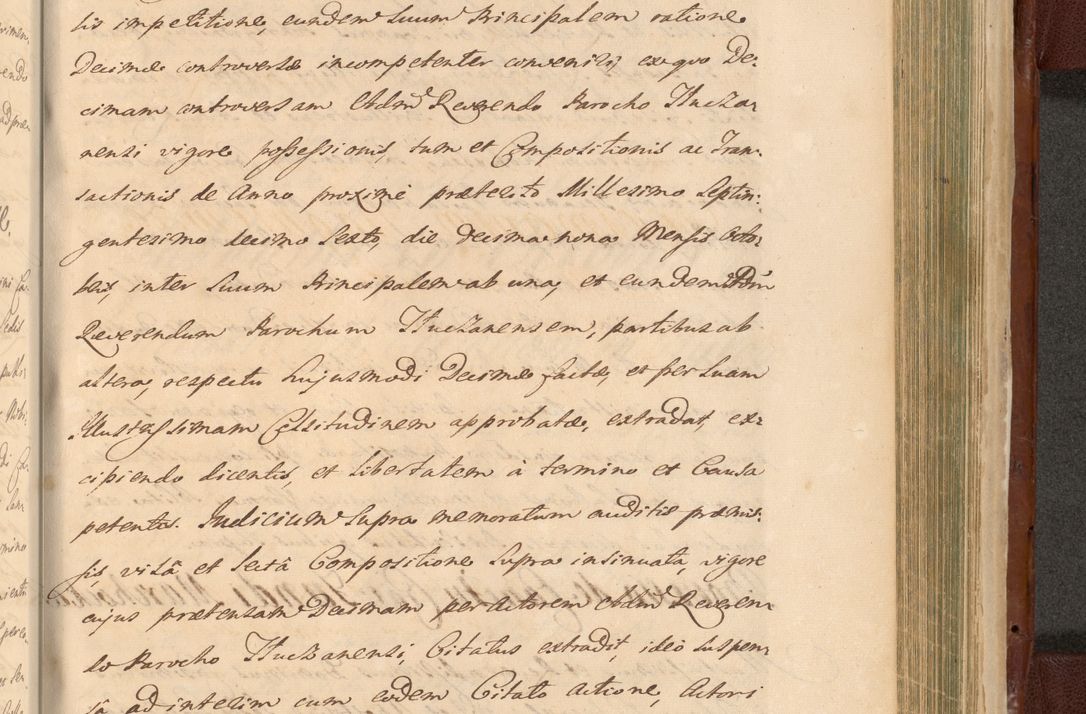 lis impetitione, eundem Suum Principalem ratione
Decimæ controversæ incompetenter conveniri, ex quo De:
cimam controversam Adm Reverendo Parocho Tłuczan:
nensi vigore possessionis, tum et Compositionis ac Tran:
sactionis de Anno proximè præterito Millesimo Septin:
gentesimo decimo Sexto, die decima nona Mensis Octo:
bris, inter Suum Principalem ab una, et eundem Adm
Reverendum Parochum Tłuczanensem, partibus ab
altera, respectu hujusmodi Decimæ factæ, et per Suam
Illustrissimam Celsitudinem approbatæ, extradat, ex:
cipiendo dicentis, et libertatem à termino et Causa
petentis. Judicium Supra memoratum auditis præmis:
sis, visâ et lectâ Compositione Supra insinuata, vigore
cujus prætensam Decimam per Actorem Adm Reveren:
do Parocho Tłuczanensi, Citatus extradit, ideò suspen:
sâ ad interim cum eodem Citato actione, Actori